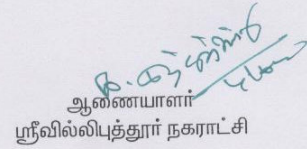 ஆணையாளர்
ஸ்ரீவில்லிபுத்தூர் நகராட்சி